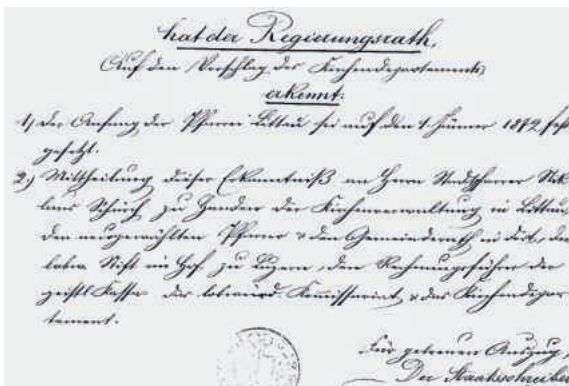 hat der Regierungsrath,
Auf den Vorschlag des Kirchendepartements
erkennt:
1, Der Anfang der Pfarrei Littau sei auf den 1. Jänner 1872 fest
gesetzt.
2.) Mittheilung dieser Erkanntniß an Herrn Stadtpfarrer Nik
laus Schürch zu Handen der Kirchenverwaltung in Littau,
den neugewählten Pfarrer & den Gemeinderath in dort, das
löbe Stift im Hof zu Luzern, den Rechnungsführer der
geistl. Kassa das hochwürd. Kommissariat & das Kirchendepar
tement.
Für getreuen Auszug,
Der Staatsschreiber